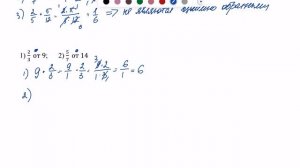 3) 2/5 · 5/12 = 2·5/5·12 = 1/6 ⇒ не являются взаимно обратными
1) 2/3 от 9; 2) 5/7 от 14
1) 9 · 2/3 = 9/1 · 2/3 = 9·2/1·3 = 6/1 = 6
2)